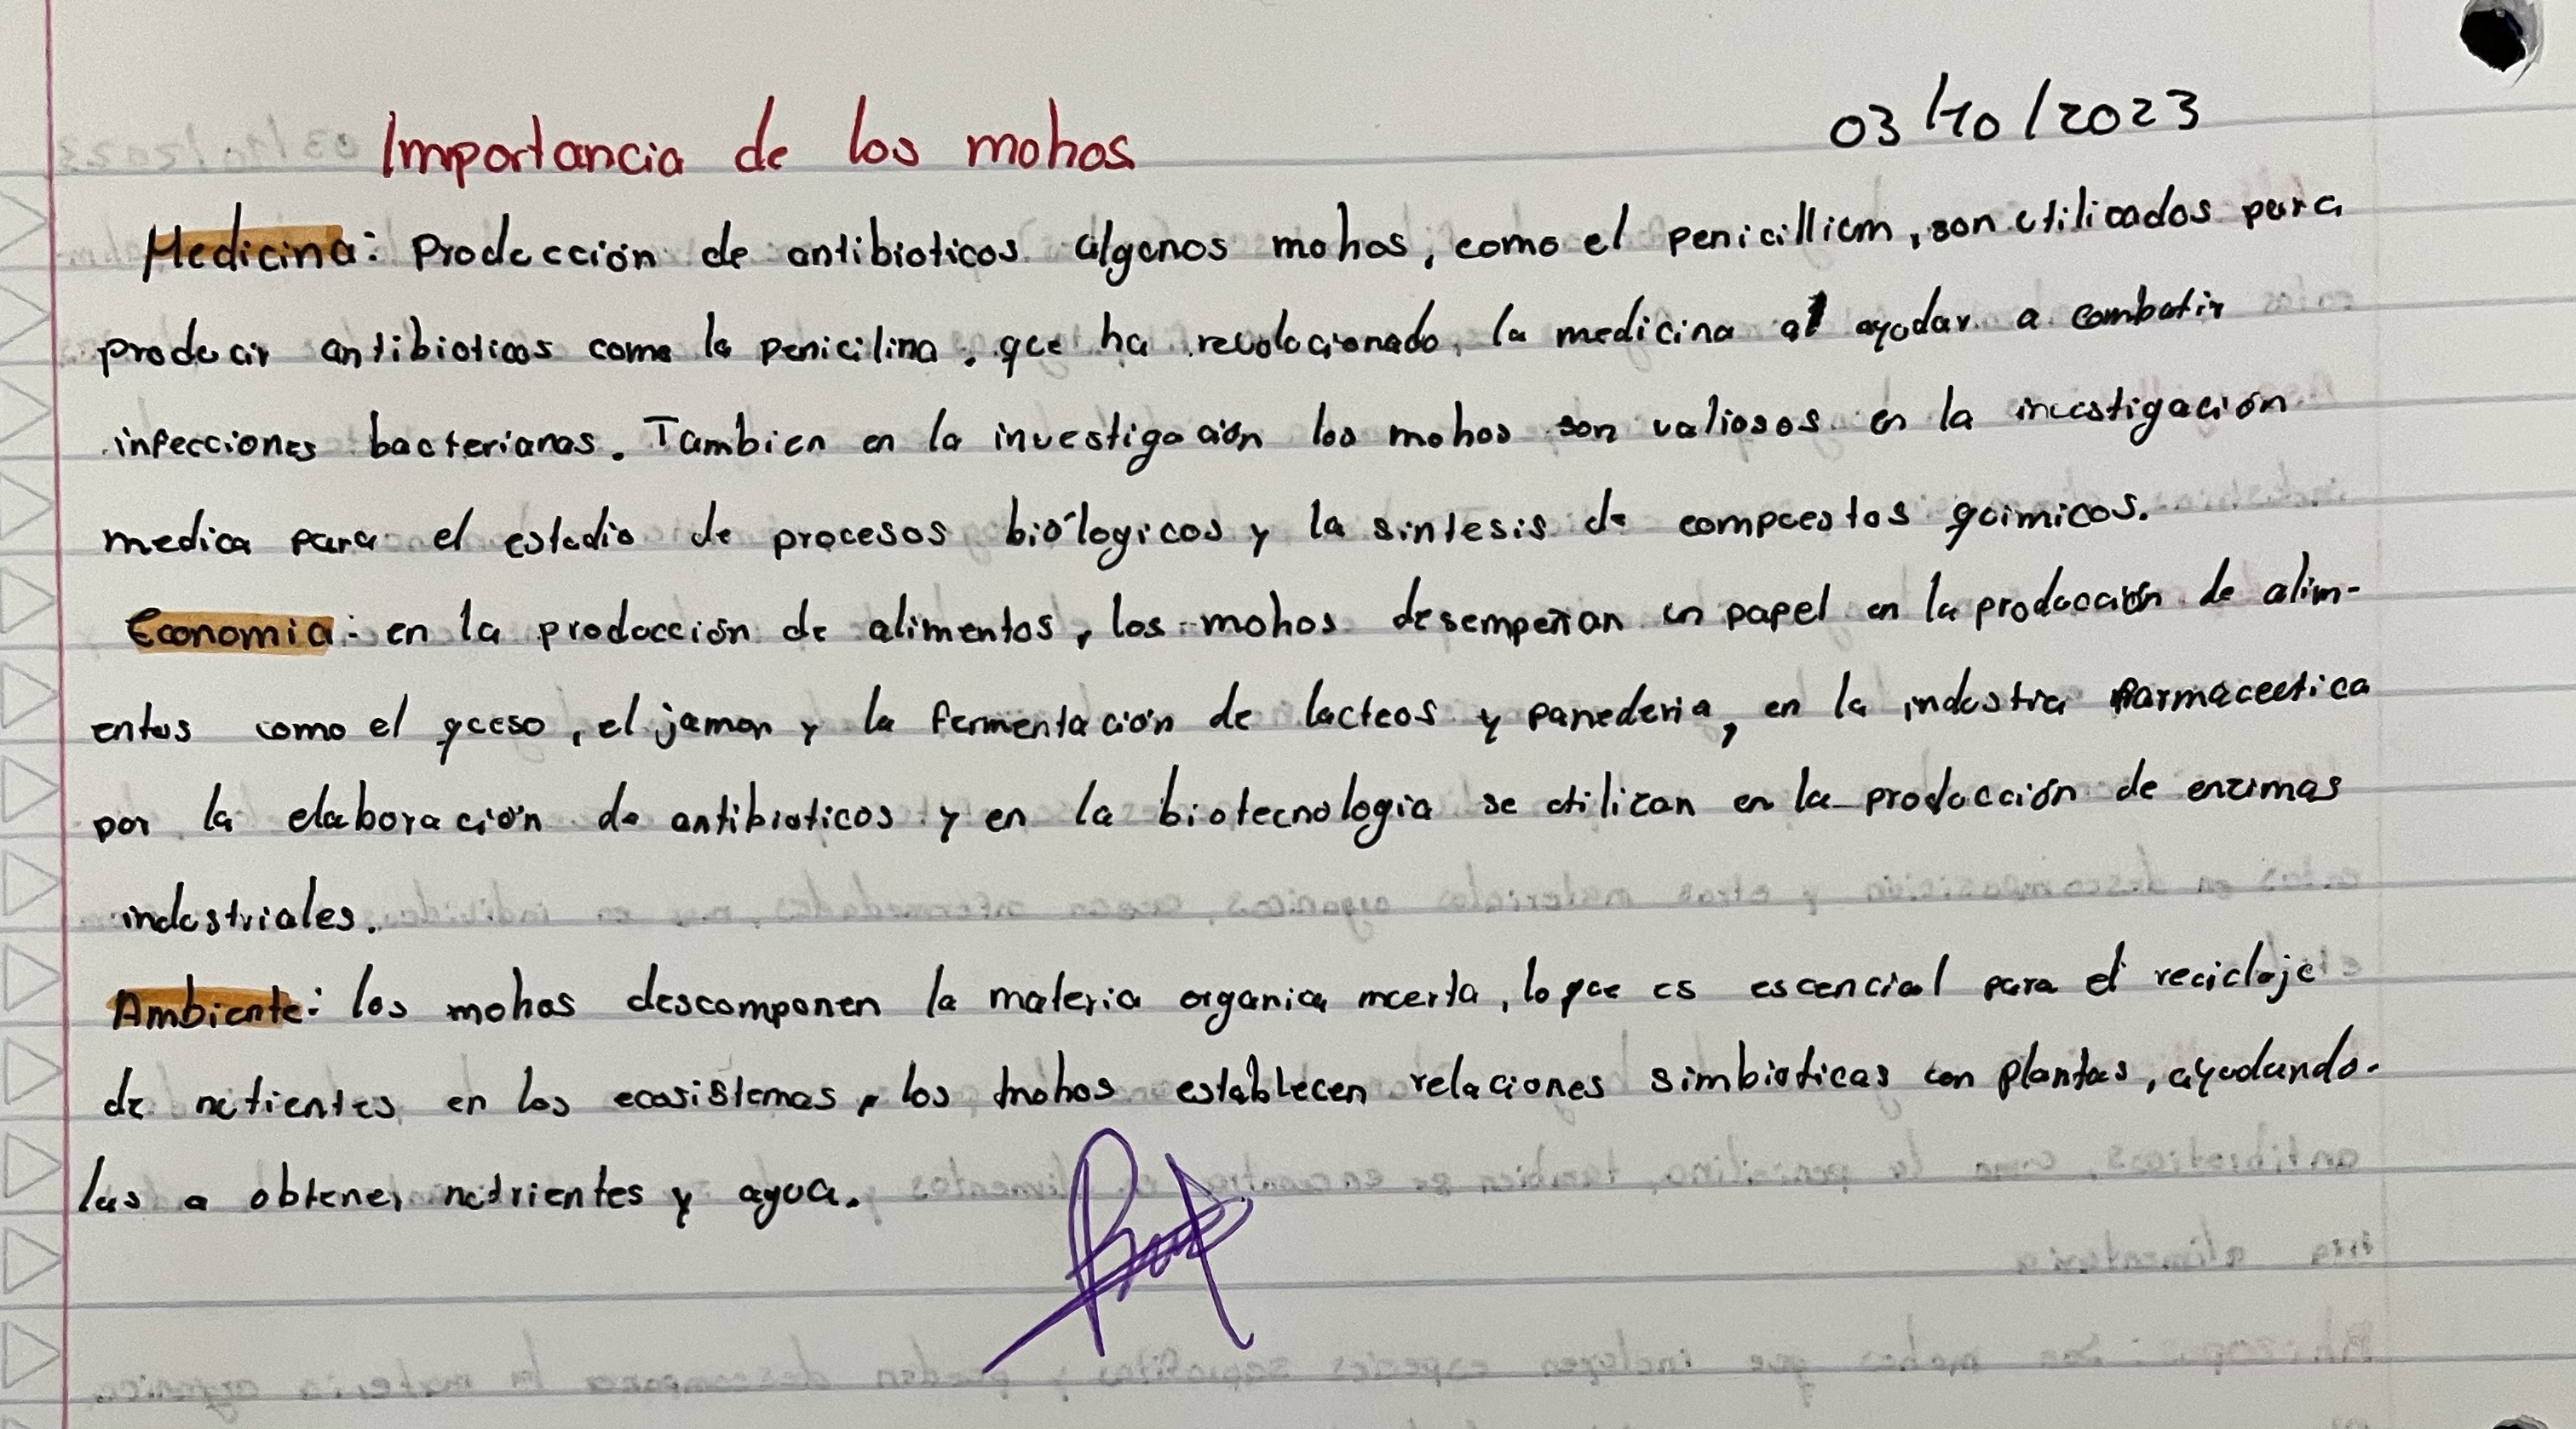 Importancia de los mohos
03/10/2023
Medicina: Producción de antibioticos algunos mohos, como el penicillium, son utilizados para
producir antibioticos como la penicilina, que ha revolucionado, la medicina al ayudar a combatir
infecciones bacterianas. Tambien en la investigación los mohos son valiosos en la investigación
medica para el estudio de procesos biólogicos y la sintesis de compuestos quimicos.
Economia: en la producción de alimentos, los mohos desempeñan un papel en la producción de alim-
entos como el queso, el jamon y la fermentación de lacteos y panederia, en la industria farmaceutica
por la elaboración de antibioticos y en la biotecnologia se utilizan en la producción de enzimas
industriales.
Ambiente: los mohos descomponen la materia organica muerta, lo que es escencial para el reciclaje
de nutientes en los ecosistemas, los mohos establecen relaciones simbioticas con plantas, ayudando-
las a obtener nutrientes y agua.